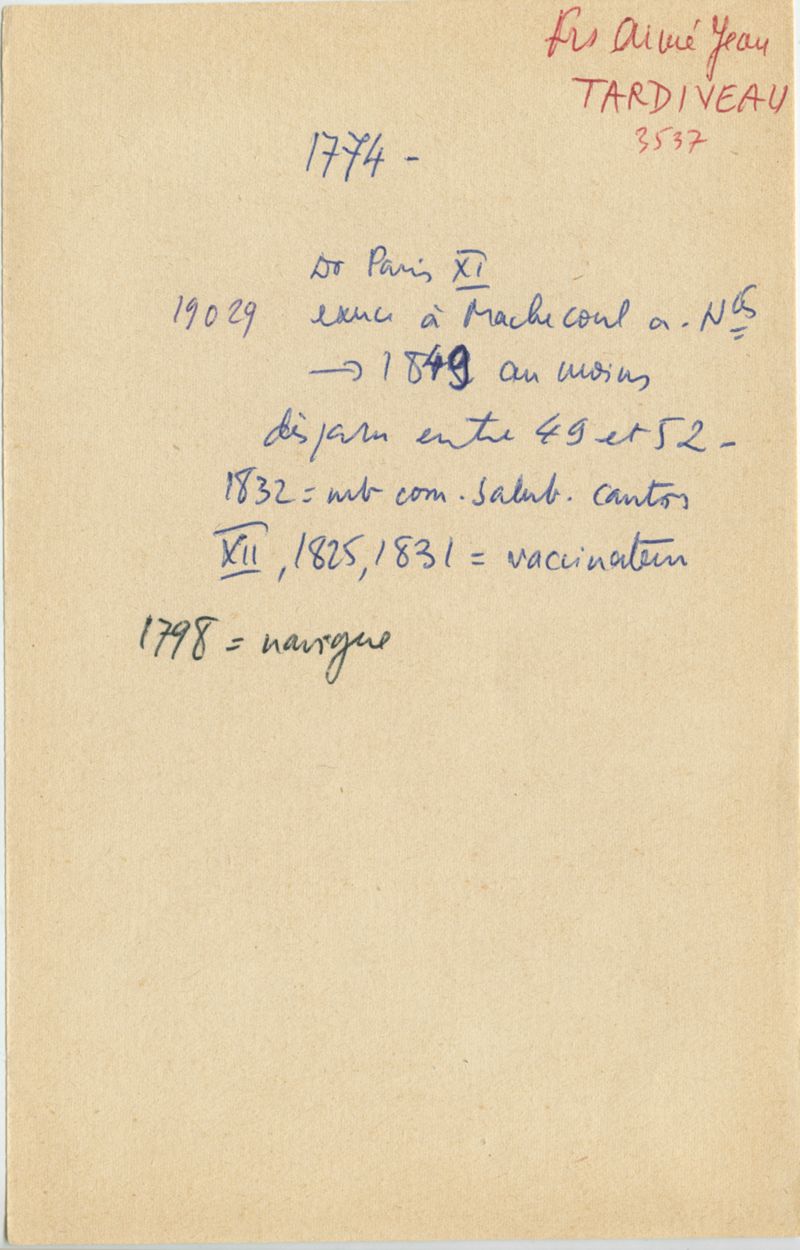 Frs Aimé Jean
TARDIVEAU
3537
1774 -
Dr Paris XI
19029 exerce à Machecoul a. Ntes
→ 1849 au moins
disparu entre 49 et 52 -
1832 = mb com. salub. canton
XII, 1825, 1831 = vaccinateur
1798 = navigue